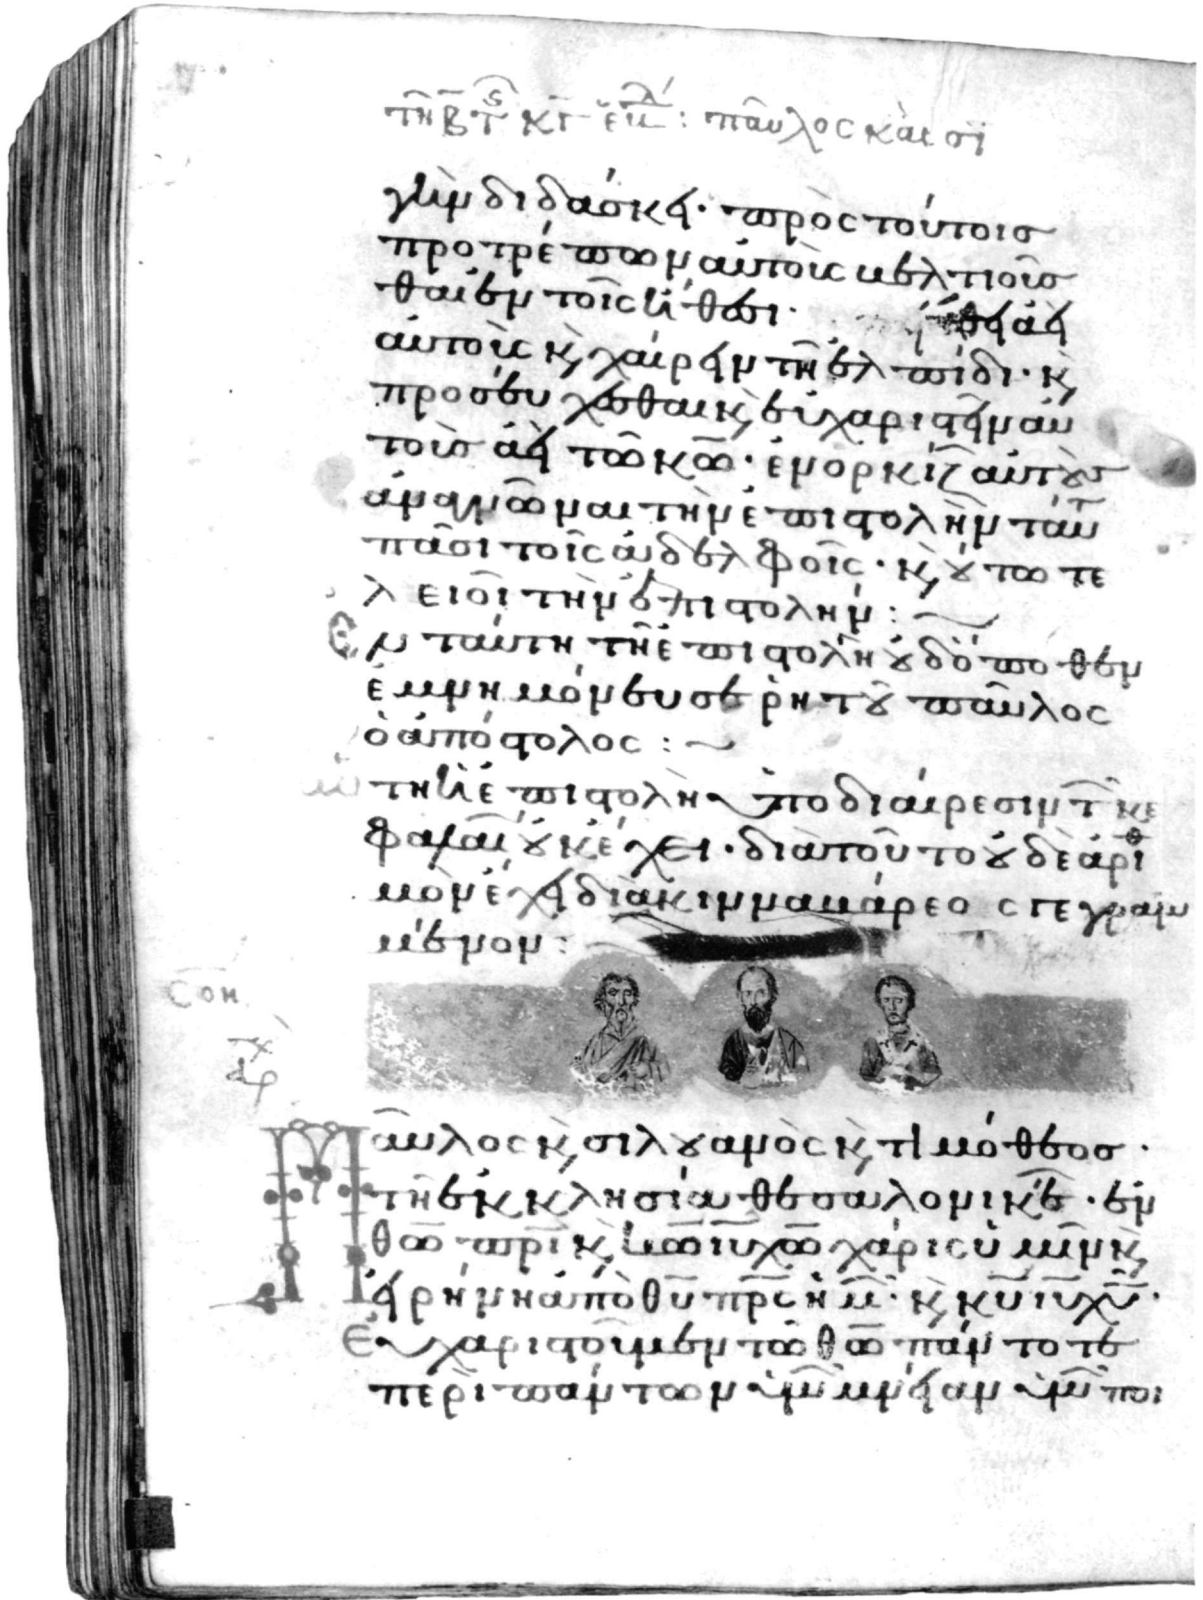 τῆ Β τῆς κγ ἑβδ : παῦλος καὶ σι
γὴν διδάσκει· πρὸς τούτοις
προτρέπων αὐτοὺς βελτιοῦσ
θαι ἐν τοῖς ἤθεσι·
αὐτοὺς κ, χαίρειν τῆ ἐλπίδι· κ,
προσεύχεσθαι κ, εὐχαριστεῖν αὐ
τοὺς ἀεὶ τῶ κω· ἐνορκίζ αὐτοὺς
ἀναγνῶναι τὴν ἐπιστολὴν ταύτ
πᾶσι τοῖς ἀδελφοῖς· κ, οὕτω τε
λειοῖ τὴν ἐπιστολήν :
Ἐν ταύτη τῆ ἐπιστολῆ οὐδόποθεν
ἐμνημόνευσε ρητοῦ παῦλος
ὁ ἀπόστολος :
τὴν ἐπιστολὴ ὑποδιαίρεσιν τ κε
φαλαί οὐκ ἔχει· διὰ τοῦτο οὐδὲ ἀριθ
μὸν ἔχει διὰ κινναμάρεος γεγραμ
μένον :
αρχ
Παῦλος κ, σιλουανὸς κ, τιμόθεος·
τῆ ἐκκλησία θεσσαλονικέ· ἐν
θω πρι κ, κω ιυ χω χάρις ὑμῖν κ,
εἰρήνη ἀπὸ θυ πρς ἡμ· κ, κυ ιυ χυ·
Εὐχαριστοῦμεν τῶ θω πάντοτε
περὶ πάντων ὑμ μνείαν ὑμ ποι